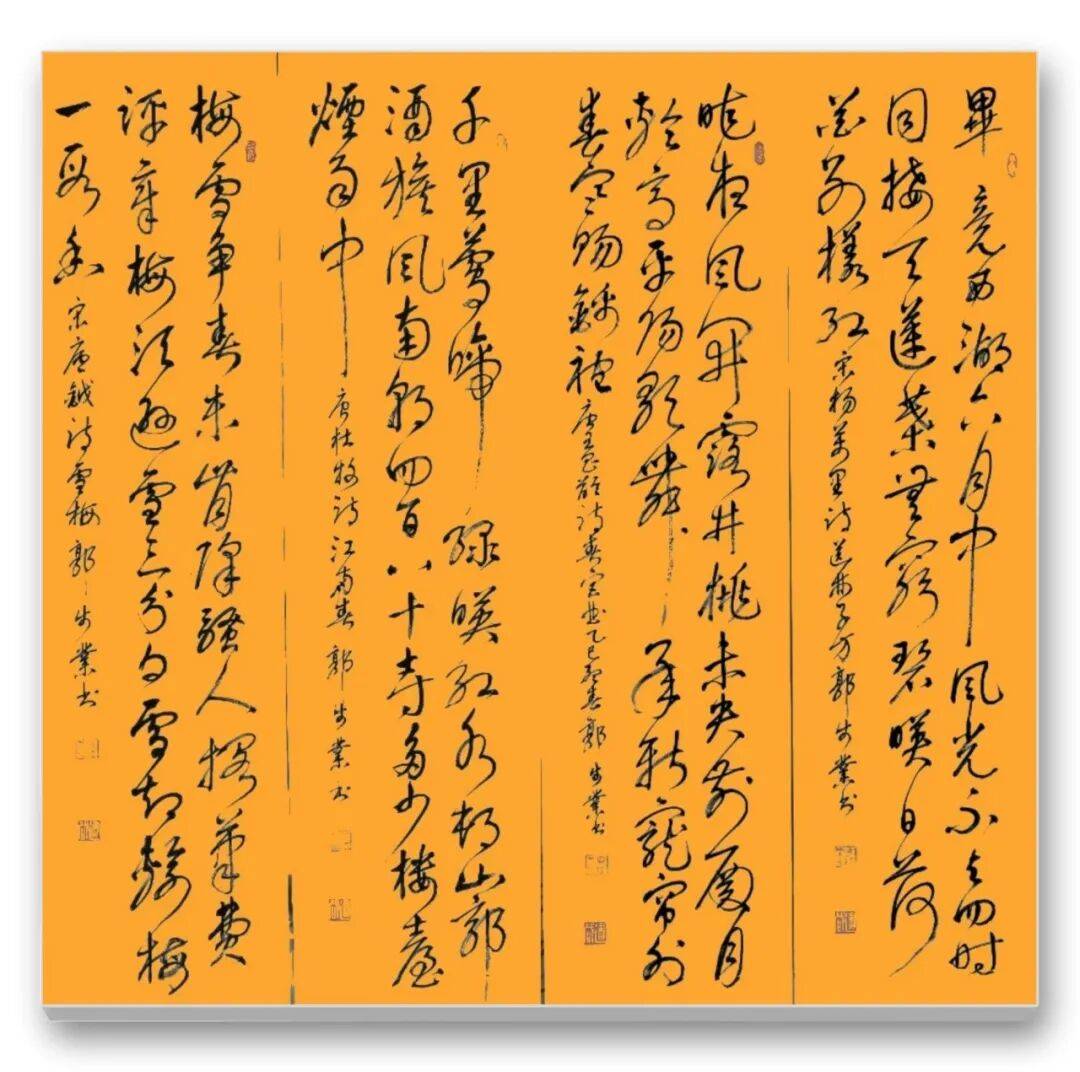 畢竟西湖六月中風光不与四时
同接天蓮葉無窮碧映日荷
花别樣红宋杨萬里诗送林子方郭步業书
昨夜風開露井桃未央前殿月
輪高平陽歌舞承新寵帘外
春寒賜錦袍唐王昌龄诗春宫曲乙巳春郭步業书
千里鶯啼綠映红水村山郭
酒旗風南朝四百八十寺多少樓臺
煙雨中唐杜牧诗江南春郭步業书
梅雪争春未肯降骚人擱筆費
評章梅须逊雪三分白雪却輸梅
一段香宋盧鉞诗雪梅郭步業书